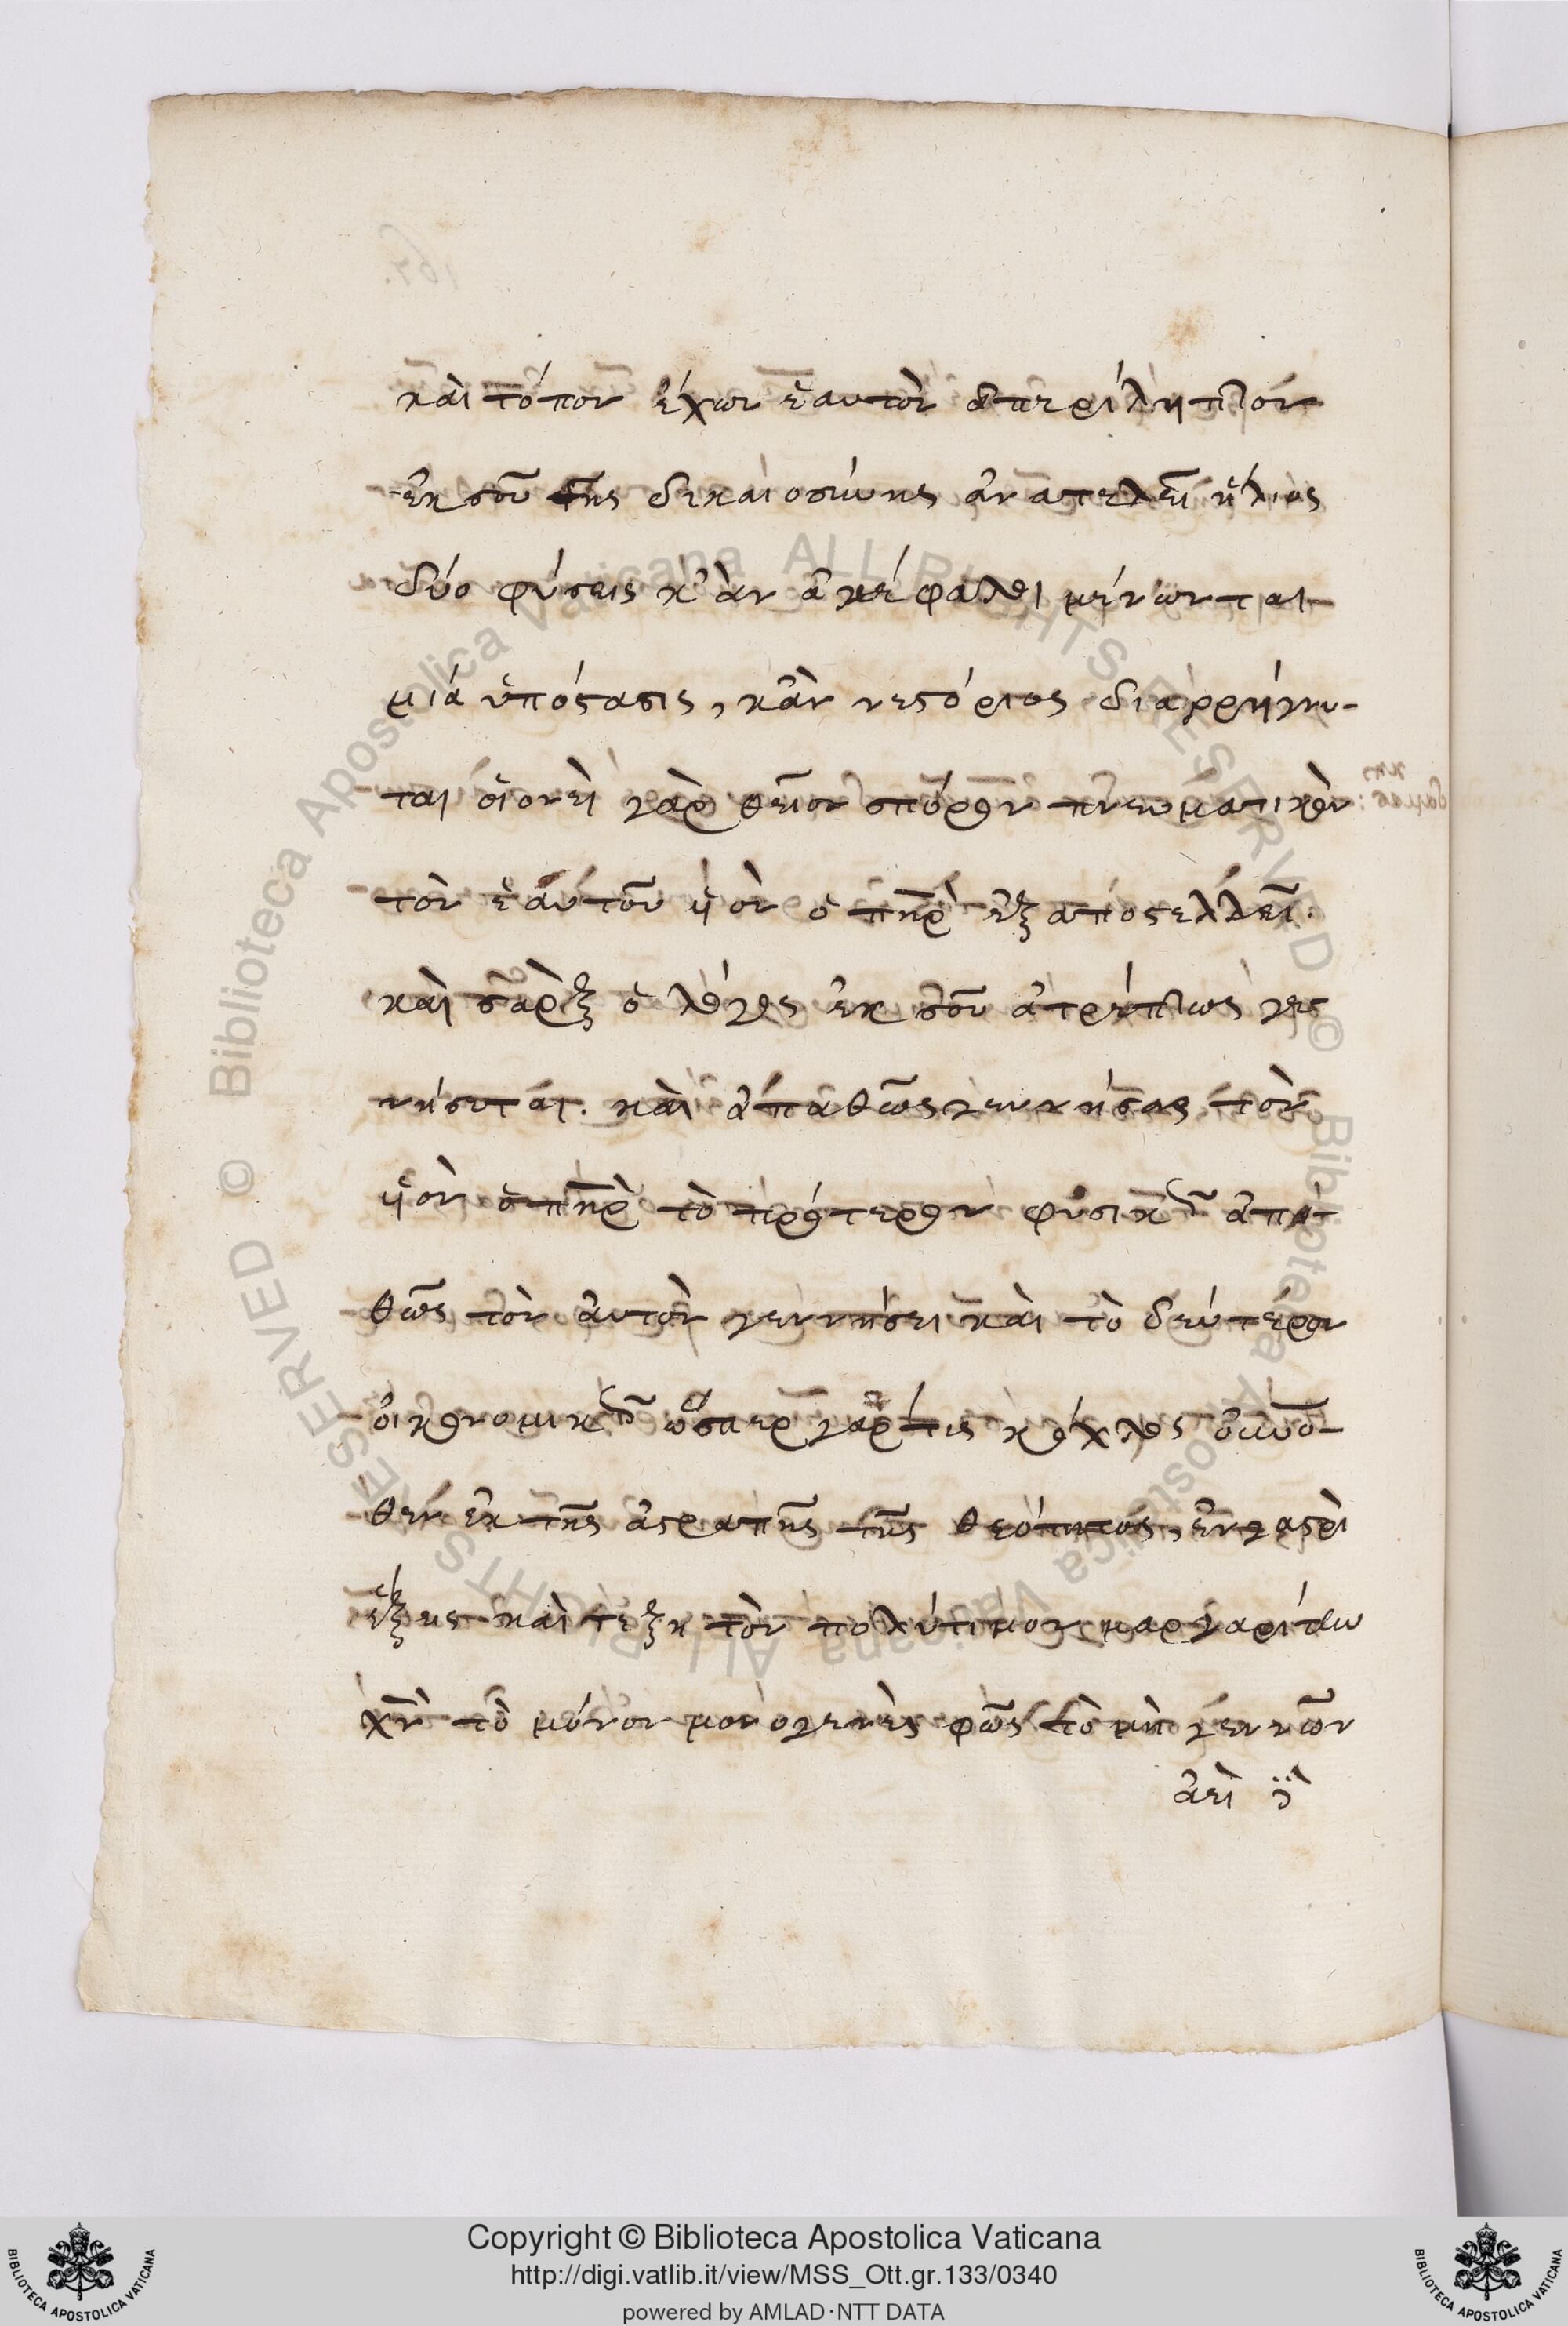 καὶ τόπον ἔχων ἑαυτὸν ἀπερίληπτον
ἐκ σοῦ τῆς δικαιοσύνης ἀνατελεῖ ἥλιος
δύο φύσεις κἂν ἀκέφαλοι μένωνται
μία ὑπόστασις, κἂν νεστόριος διαρρήγνυ-
ται οἱονεὶ γὰρ θεῖον σπόρον πνευματικὸν
τὸν ἑαυτοῦ υἱὸν ὁ πηρ ἐξαποστελλεῖ.
καὶ σὰρξ ὁ λόγος ἐκ σοῦ ἀτρέπτως γεν
νήσεται. καὶ ἀπαθῶς γεννήσας τὸν
υἱὸν ὁ πηρ τὸ πρότερον φυσικῶς ἀπα-
θῶς τὸν αὐτὸν γεννήσει καὶ τὸ δεύτερον
οἰκονομικῶς ὥσπερ γάρ τις κόχλος
θεν ἐκ τῆς ἀστραπῆς τῆς θεότητος, ἐν γαστρὶ
ἕξεις καὶ τέξῃ τὸν πολύτιμον μαργαρίτην
χν τὸ μόνον μονογενὲς φῶς τὸ μὴ γεννῶν
ἀεὶ
Copyright © Biblioteca Apostolica Vaticana
http://digi.vatlib.it/view/MSS_Ott.gr.133/0340
powered by AMLAD·NTT DATA
BIBLIOTECA APOSTOLICA VATICANA
BIBLIOTECA APOSTOLICA VATICANA
© Biblioteca Apostolica Vaticana ALL RIGHTS RESERVED © Biblioteca Apostolica Vaticana ALL RIGHTS RESERVED